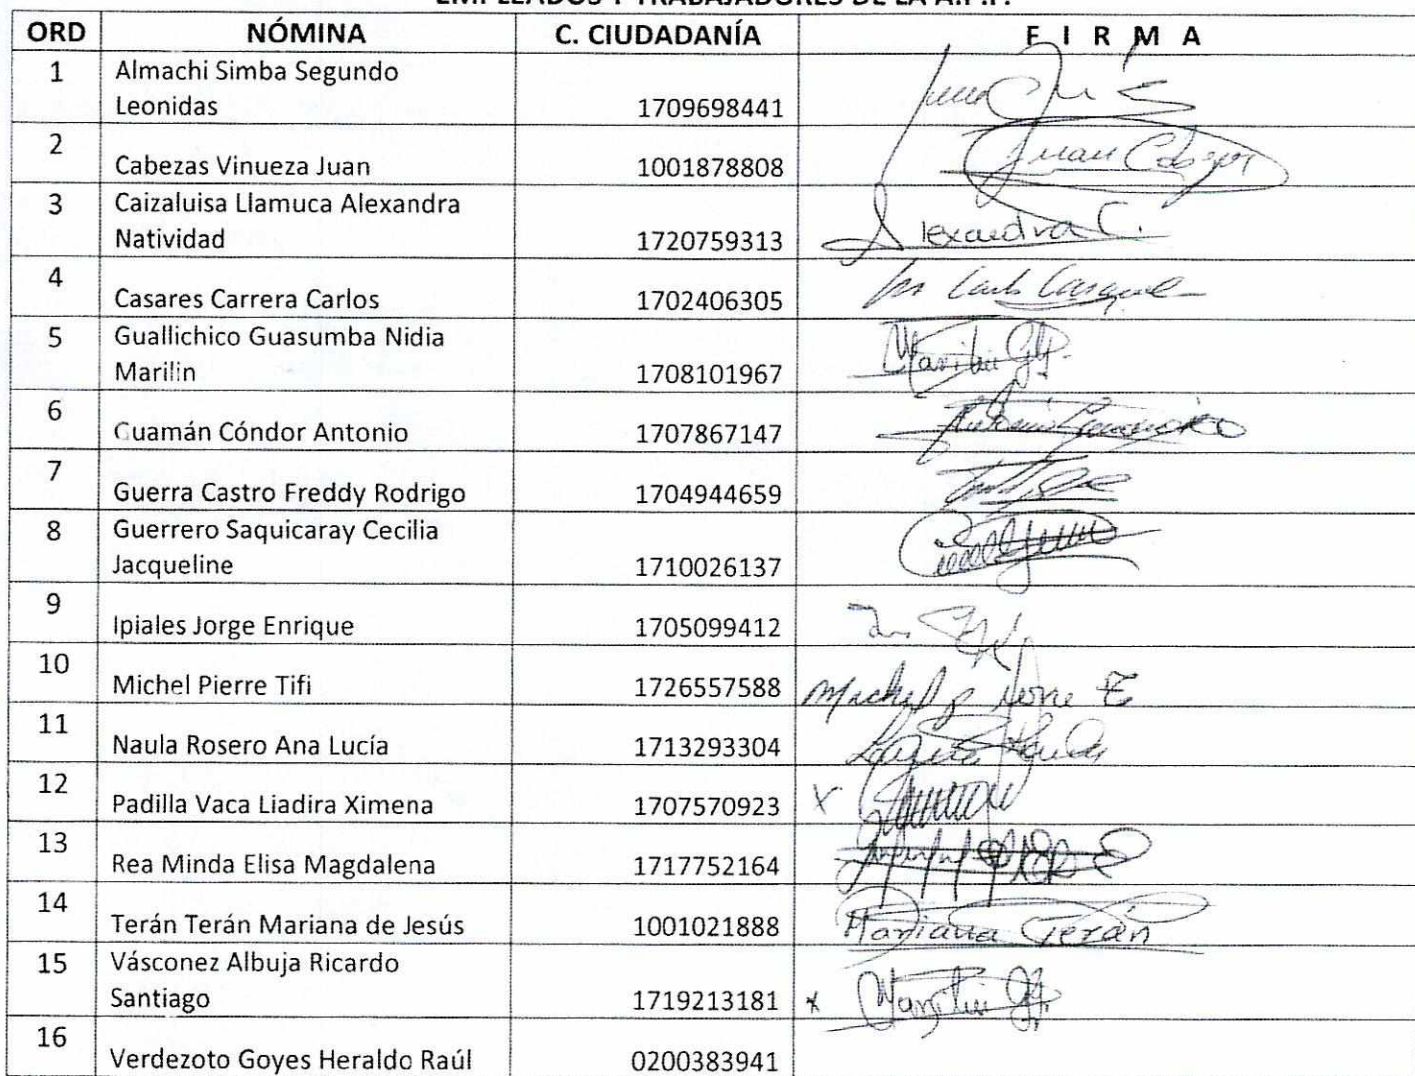 EMPLEADOS Y TRABAJADORES DE LA A.P.P.
ORD NÓMINA C. CIUDADANÍA F I R M A
1 Almachi Simba Segundo
Leonidas 1709698441
2
Cabezas Vinueza Juan 1001878808 Juan
3 Caizaluisa Llamuca Alexandra
Natividad 1720759313 Alexandra C.
4
Casares Carrera Carlos 1702406305
5 Guallichico Guasumba Nidia
Marilin 1708101967
6
Guamán Cóndor Antonio 1707867147
7
Guerra Castro Freddy Rodrigo 1704944659
8 Guerrero Saquicaray Cecilia
Jacqueline 1710026137
9
Ipiales Jorge Enrique 1705099412
10
Michel Pierre Tifi 1726557588
11
Naula Rosero Ana Lucía 1713293304
12
Padilla Vaca Liadira Ximena 1707570923 x
13
Rea Minda Elisa Magdalena 1717752164
14
Terán Terán Mariana de Jesús 1001021888 Mariana Terán
15 Vásconez Albuja Ricardo
Santiago 1719213181 x
16
Verdezoto Goyes Heraldo Raúl 0200383941